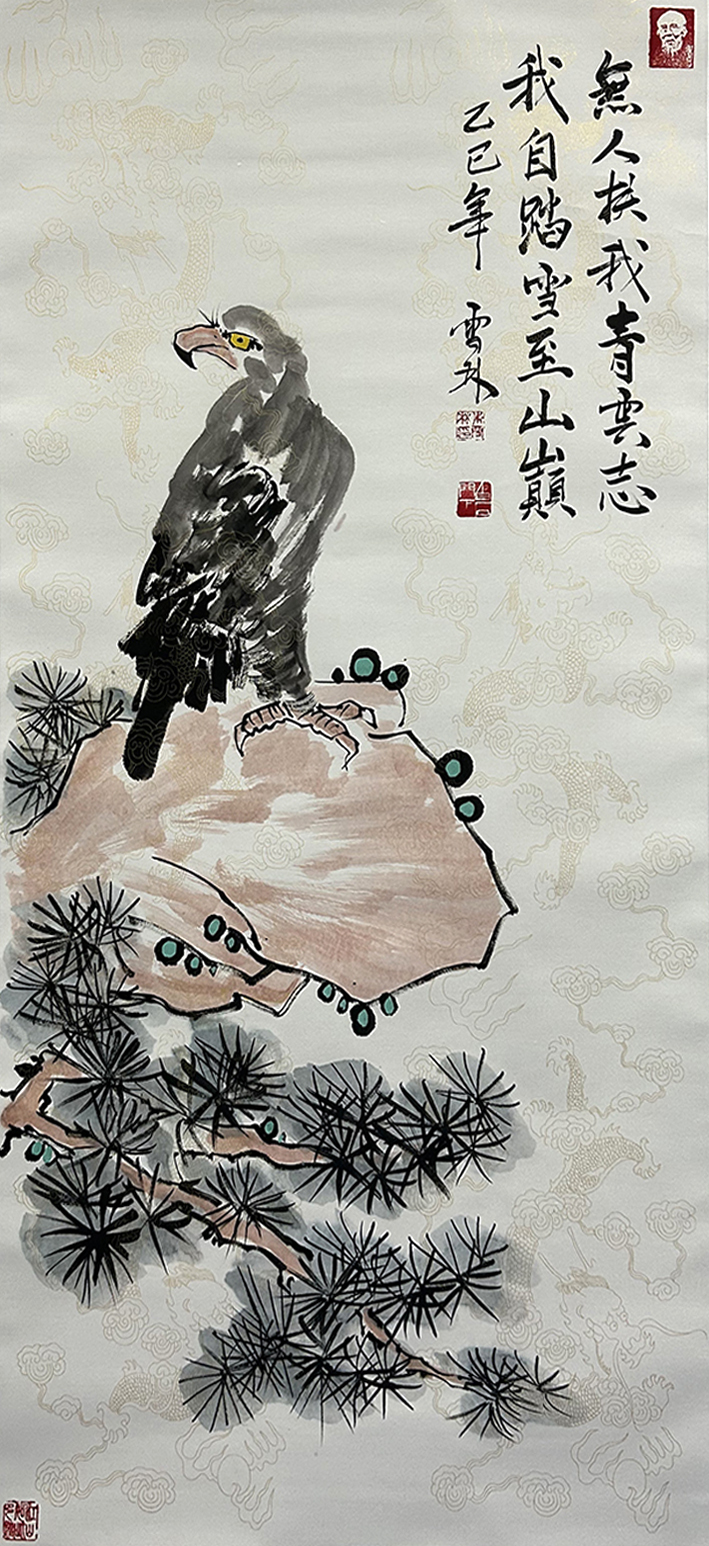 無人扶我青雲志
我自踏雪至山巔
乙巳年 雪林